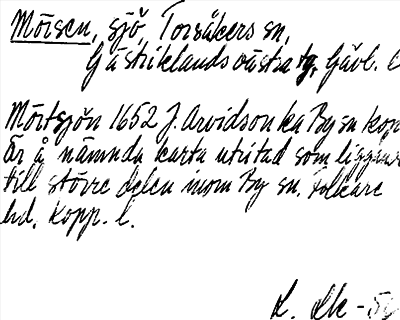 Mörsen, sjö, Torsåkers sn,
Gästriklands västra tg, Gävl. l
Mörtsjön 1652 J. Arvidson ka By sn kop
är å nämnda karta utritad som liggan
till större delen inom By sn. Folkare
hd. Kopp. l.